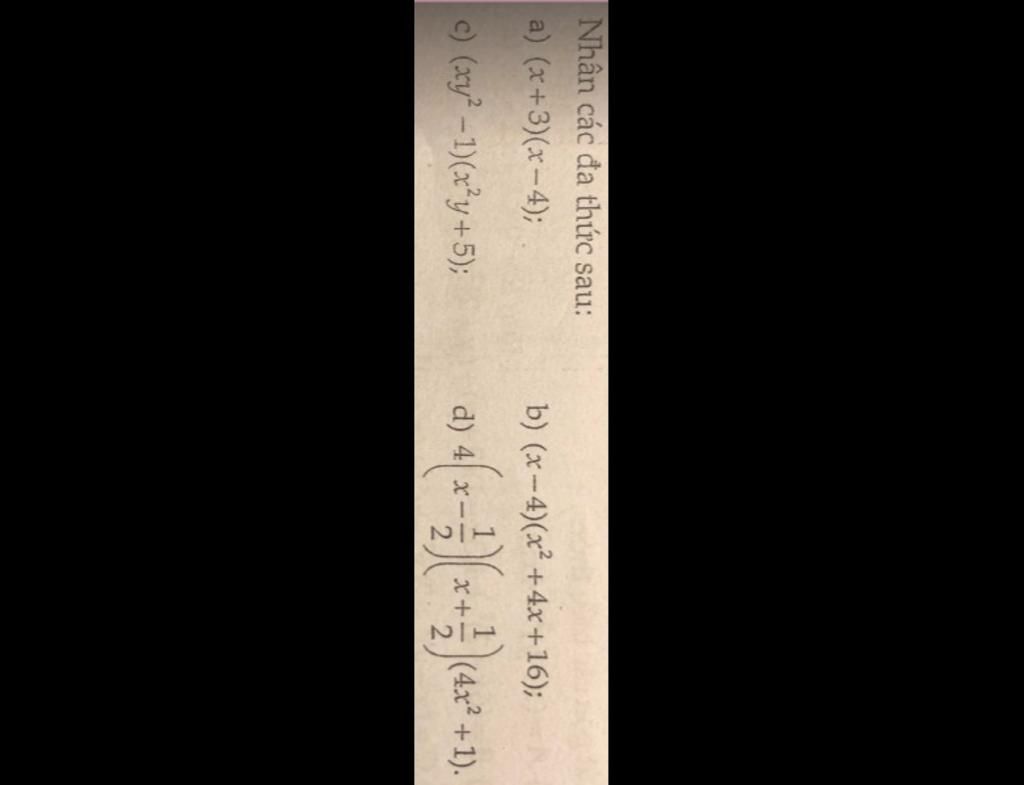 Nhân các đa thức sau:
a) (x+3)(x−4); b) (x−4)(x²+4x+16);
c) (xy²−1)(x²y+5); d) 4(x−1/2)(x+1/2)(4x²+1).